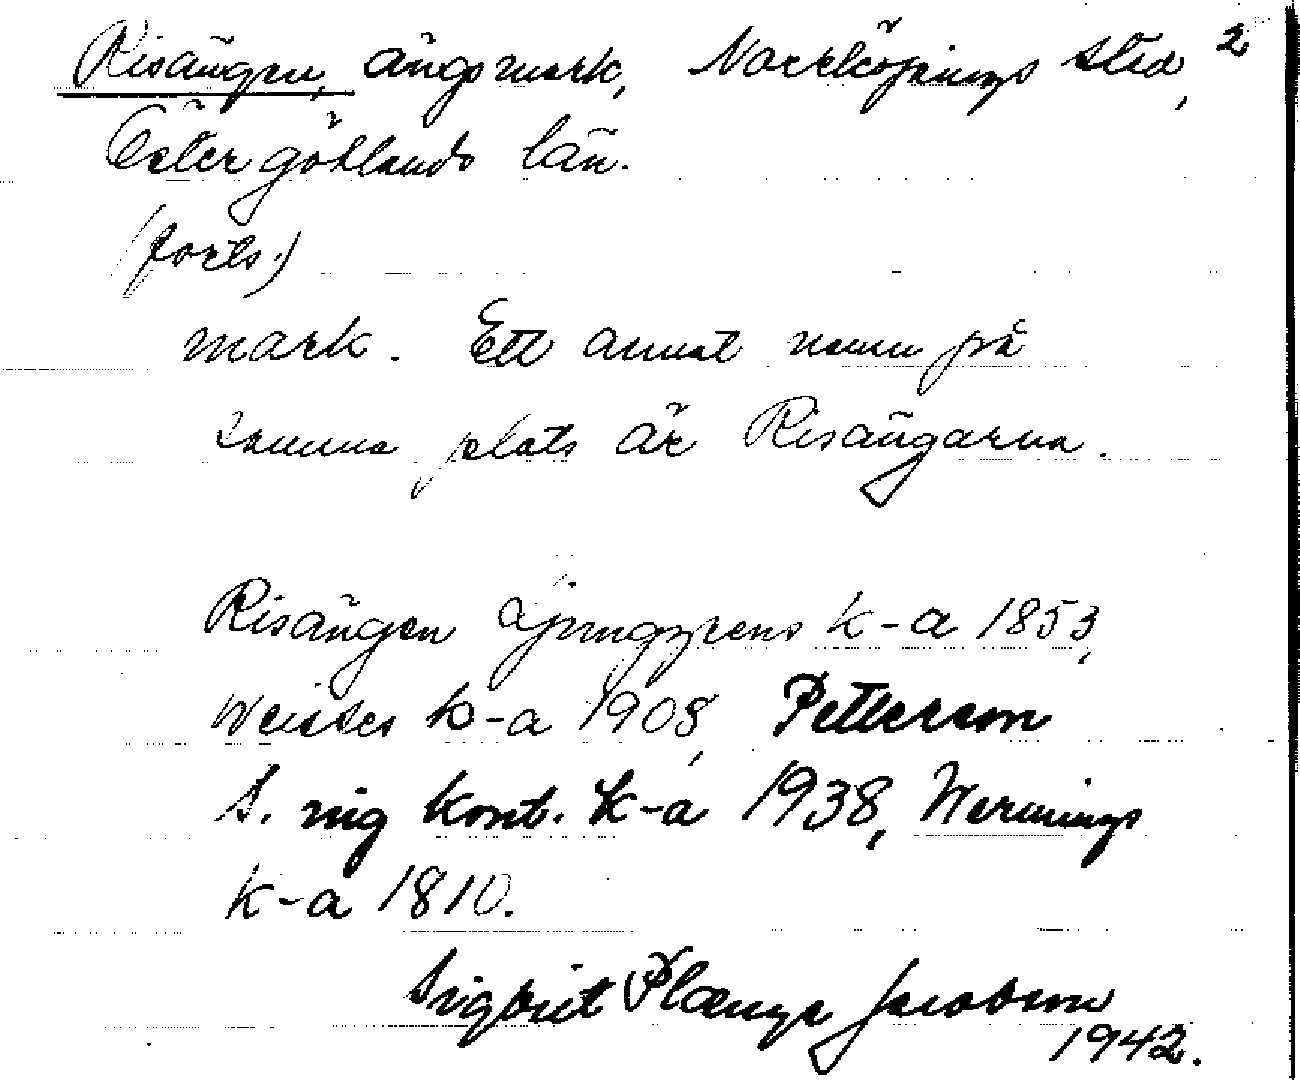 Risängen, ängsmark, Norrköpings stad, 2
Östergötlands län.
(forts.)
mark. Ett annat namn på
samma plats är Risängarna.
Risängen Ljunggrens k-a 1853,
Weisses k-a 1908, Petterson
S. ing kont. k-a 1938, Wernings
k-a 1810.
Sigbrit Plænge Jacobson
1942.